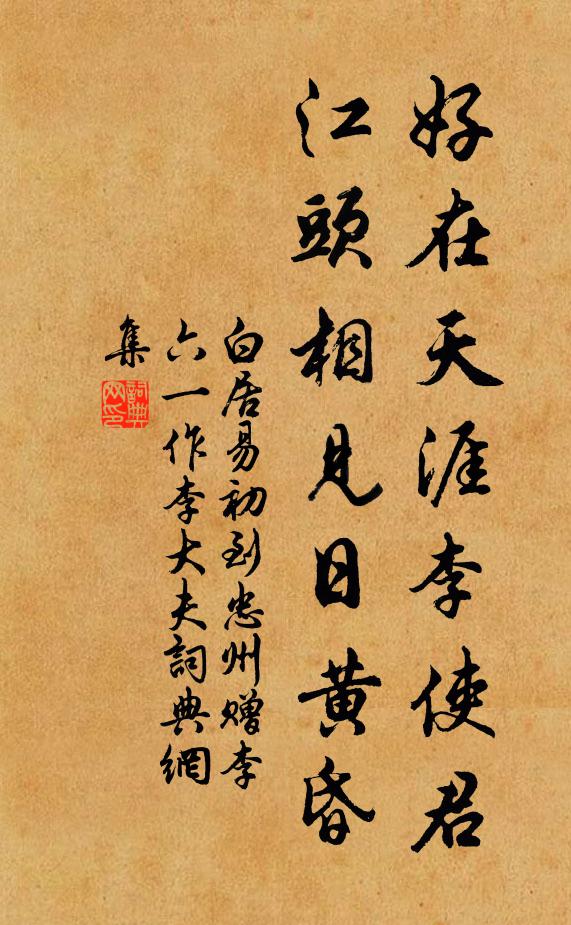 好在天涯李使君
江頭相見日黄昏
白居易初到忠州赠李
六一作李大夫詞典網
集
詞典網印